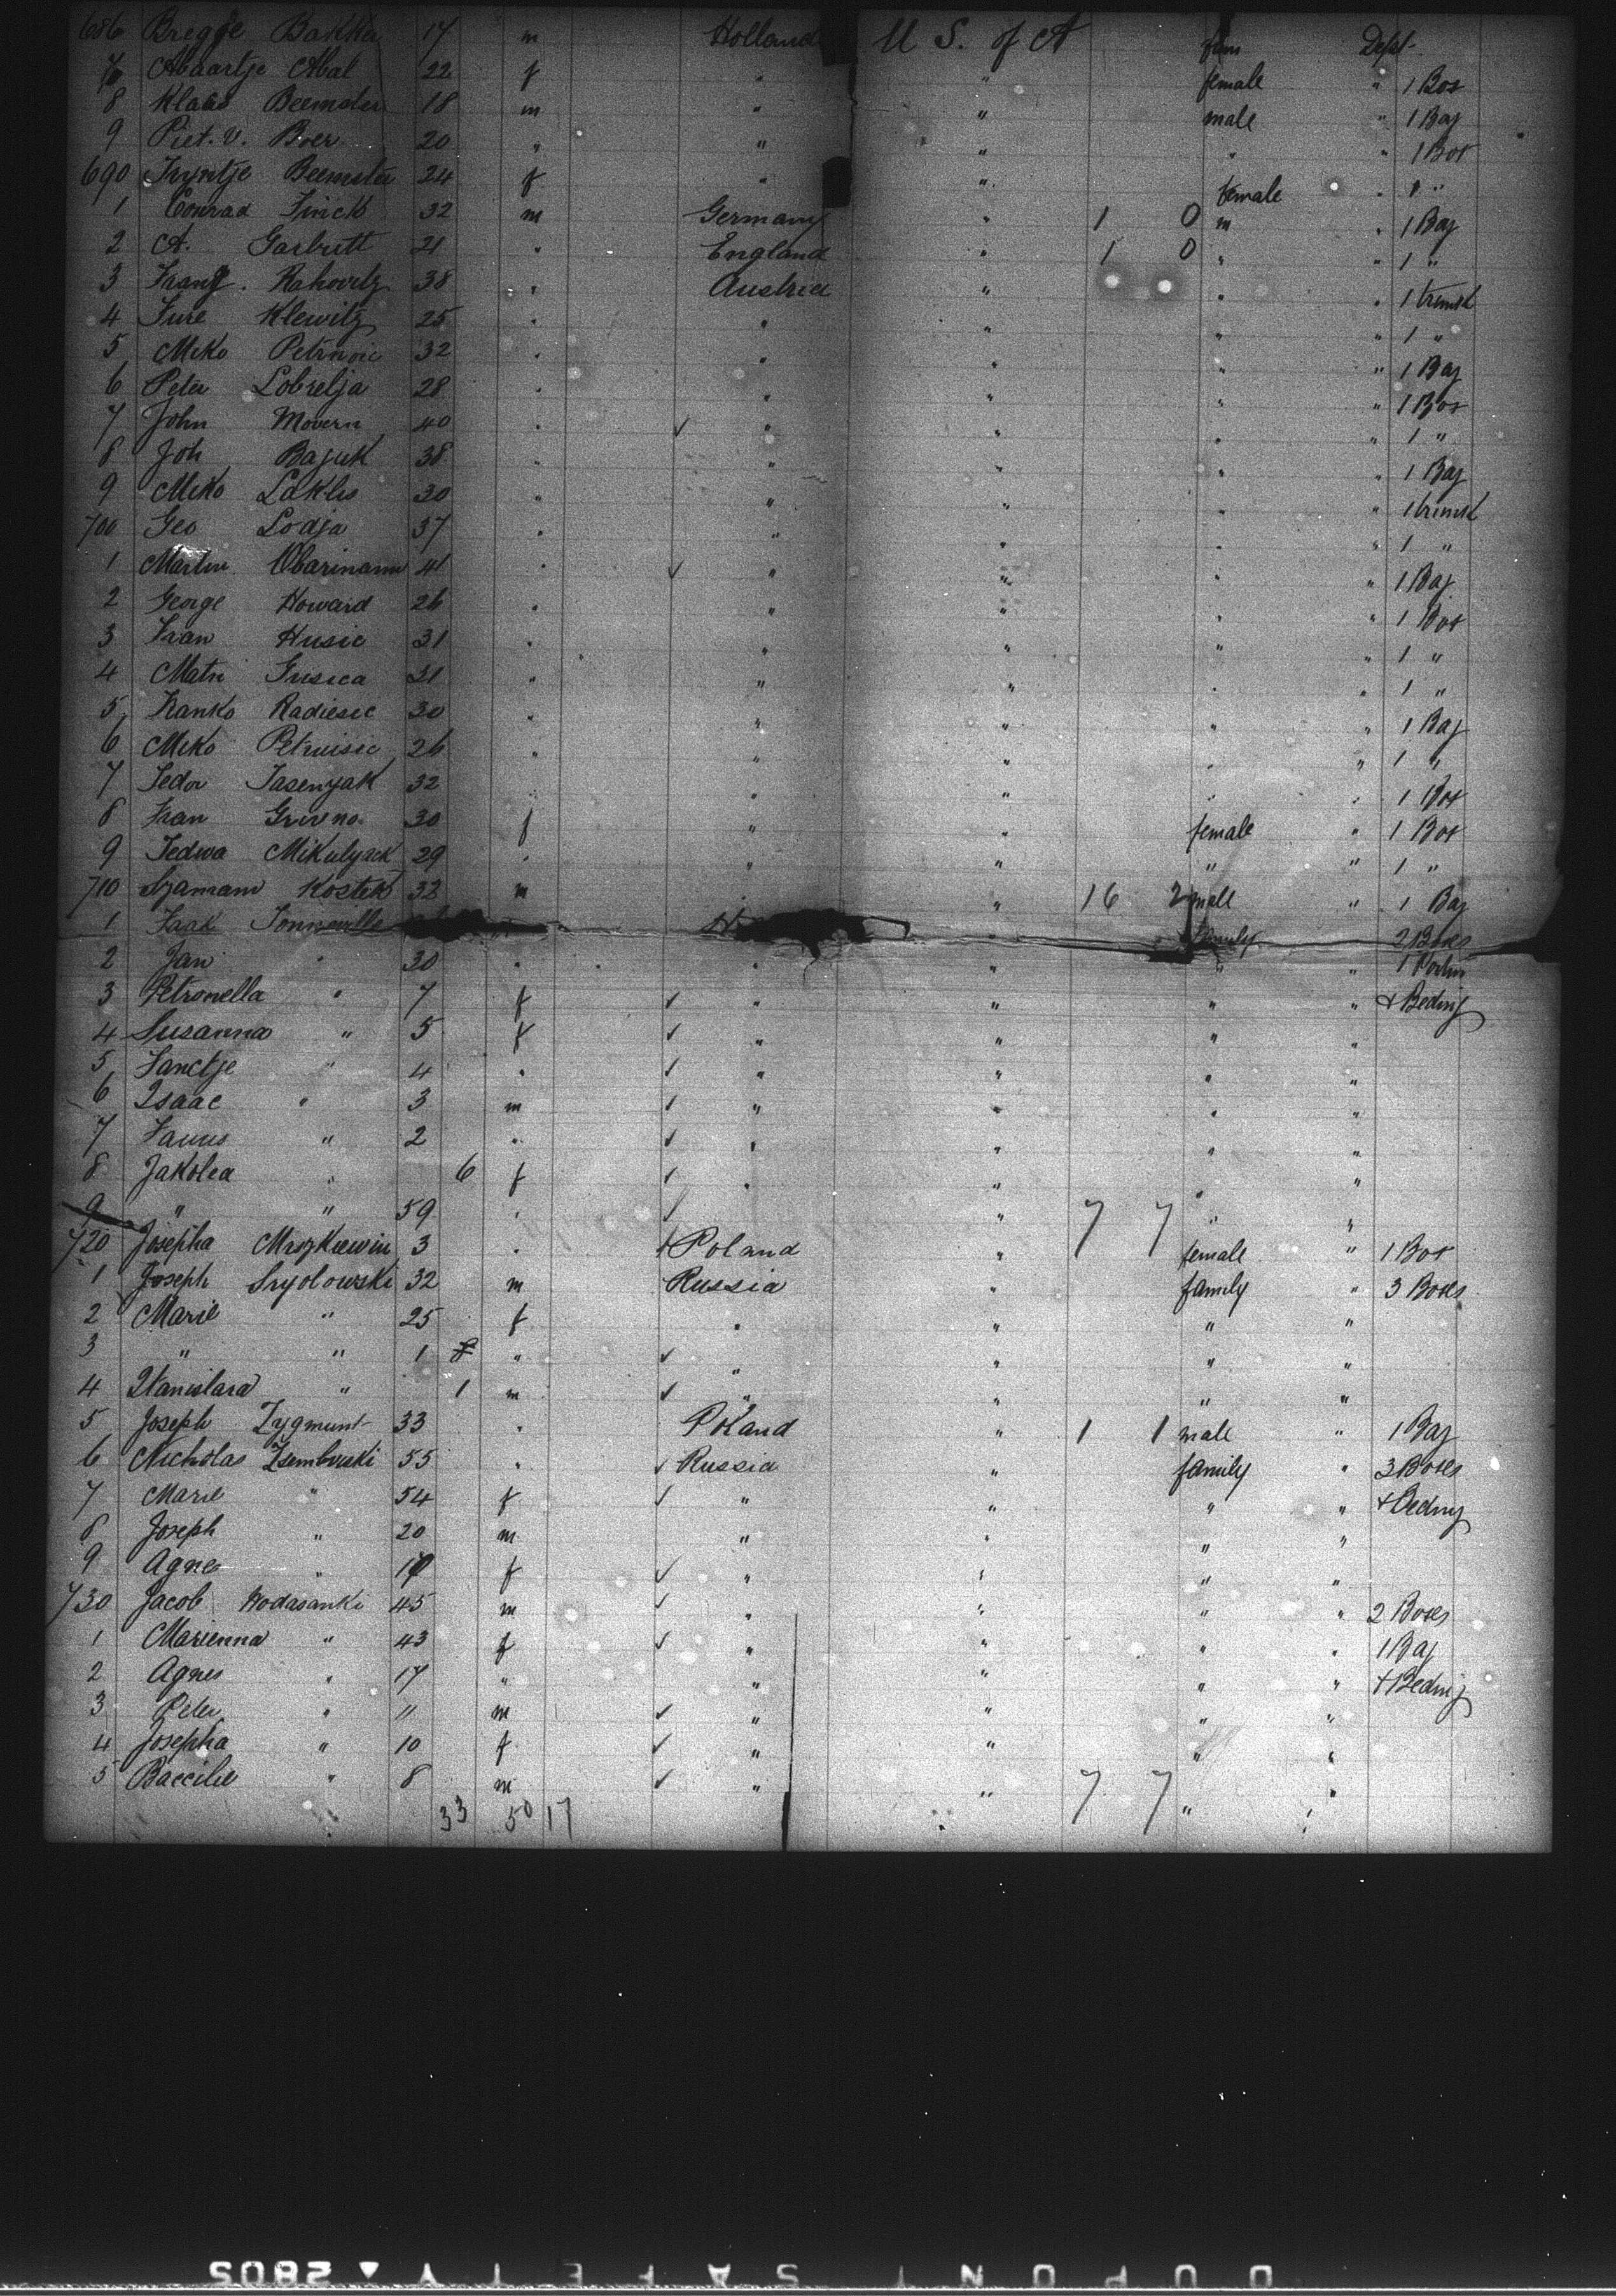 686 Bregje Bakker 17 m Holland U S. of A fem Dept
7 Abaartje Abal 22 f " " female " 1 Box
8 Klaas Beemster 18 m " " male " 1 Bag
9 Piet. V. Boer 20 " " " " " 1 Box
690 Tryntje Beemster 24 f " " female " 1 "
1 Conrad Finck 32 m Germany " 1 0 m " 1 Bag
2 A. Garbutt 21 " England " 1 0 " " 1 "
3 Rahovitz 38 " Austria " " " 1 trunk
4 Jure Klewitz 25 " " " " " 1 "
5 Miko Petrnoic 32 " " " " " 1 Bag
6 Peter Lobrelja 28 " " " " " 1 Box
7 John Movern 40 " ✓ " " " " 1 "
8 Joh Bajuk 38 " " " " " 1 Bag
9 Miko Laklis 30 " " " " " 1 trunk
700 Geo Lodja 37 " " " " " 1 "
1 Martin Obarinann 41 " ✓ " " " " 1 Bag
2 George Howard 26 " " " " " 1 Box
3 Fran Husic 31 " " " " " 1 "
4 Matri Gusica 21 " " " " " 1 "
5 Ranko Radiesic 30 " " " " " 1 Bag
6 Miko Petruisic 26 " " " " " 1 "
7 Tedor Jasenyak 32 " " " " " 1 Box
8 Fran Grivno 30 f " " female " 1 Box
9 Tedwa Mikulyack 29 " " " " " 1 "
710 Szamann Kostek 32 m " " 16 2 male " 1 Bag
1 Isaak Tonneville " family 2 Boxes
2 Jan " 30 " " " " " 1
3 Petronella " 7 f ✓ " " " " + Beding
4 Susanna " 5 f ✓ " " " "
5 Janctje " 4 " ✓ " " " "
6 Isaac " 3 m ✓ " " " "
7 " 2 " ✓ " " " "
8 Jakolea " 6 f ✓ " " " "
9 " " 59 " ✓ " 7 7 " "
720 Josepha 3 " Poland " female " 1 Box
1 Joseph Sryolowski 32 m Russia " family " 3 Boxes
2 Marie " 25 f " " " "
3 " " 1 " ✓ " " " "
4 Stanislara " 1 m ✓ " " " "
5 Joseph Zygmunt 33 " Poland " 1 1 male " 1 Bag
6 Nicholas Zsembruski 55 " ✓ Russia " family " 3 Boxes
7 Marie " 54 f ✓ " " " " + Beding
8 Joseph " 20 m " " " "
9 Agnes " f ✓ " " " "
730 Jacob Wodasanki 45 m ✓ " " " " 2 Boxes
1 Marienna " 43 f ✓ " " " " 1 Bag
2 Agnes " 17 " " " " " + Beding
3 Peter " 11 m ✓ " " " "
4 Josepha " 10 f ✓ " " " "
5 Baccilie " 8 m ✓ " " 7 7 " "
33 50 17
DUPONT SAFETY ▲ 2805